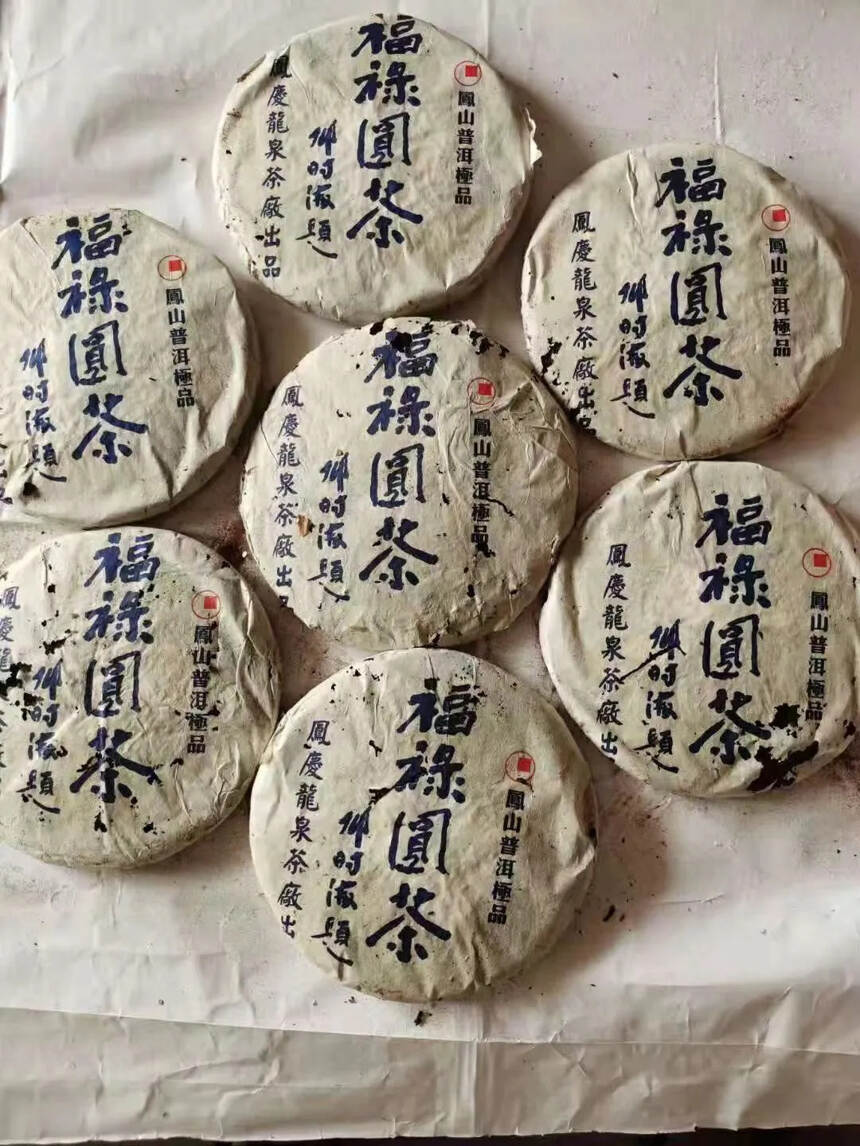 鳳山普洱極品
福祿圓茶
邓时海題
鳳慶龍泉茶廠出品
鳳山普洱極品
福祿圓茶
邓时海題
鳳慶龍泉茶廠出品
鳳山普洱極品
福祿圓茶
邓时海題
鳳山普洱極品
福祿圓茶
邓时海題
鳳慶龍泉茶廠出
鳳山普洱極品
福祿圓茶
邓时海題
鳳慶龍泉茶廠出
鳳山普洱極品
福祿圓茶
邓时海題
鳳慶龍
鳳山普洱極品
福祿圓茶
邓时海題
鳳慶龍泉茶廠出